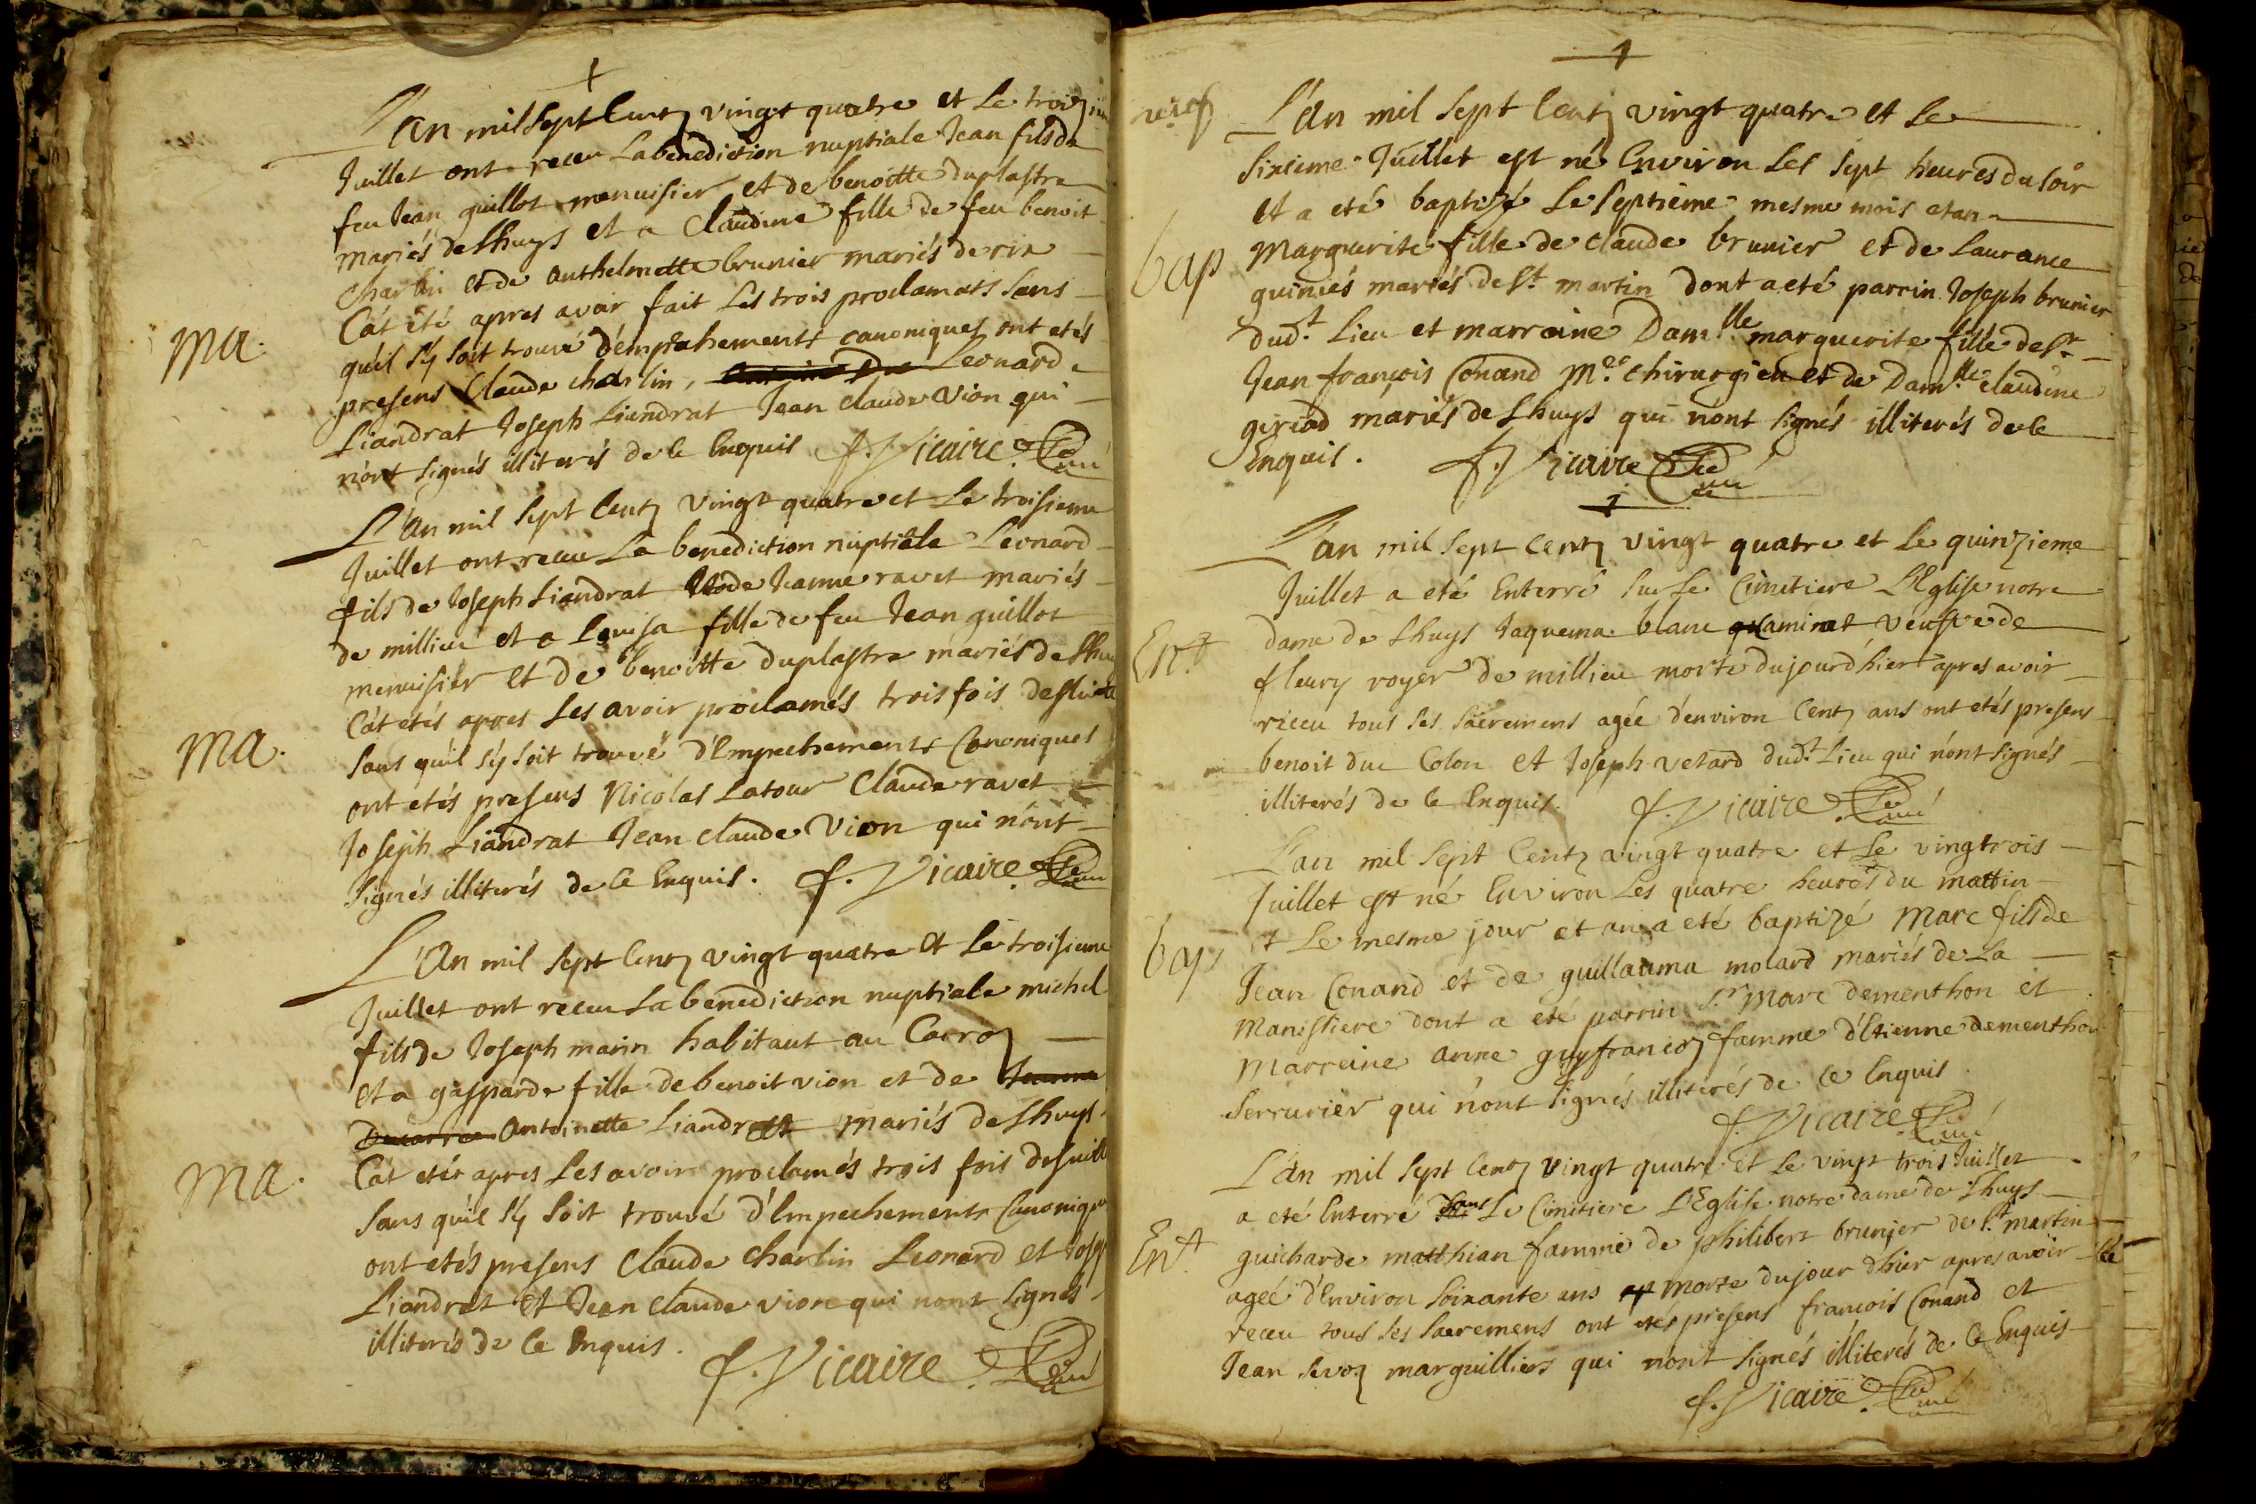 L'an mil sept Centz vingt quatre et Le
Juillet ont receu La benediction nuptiale Jean fils de
feu Jean guillot menuisier et de benoitte duplastre
mariés de Lhuys et a Claudine fille de feu benoit
charlin et de anthelmette brunier mariés de rix
Cat eté apres avoir fait Les trois proclamats sans
ma.
qu'il s'y soit trouvé d'empechements canoniques ont etés
presens Claude charlin, Leonard
Liandrat Joseph Liandrat Jean claude Vion qui
n'ont signés illiterés de le Enquis f. Vicaire Curé
L'an mil sept Centz vingt quatre et Le troisieme
Juillet ont receu La benediction nuptiale Leonard
fils de Joseph Liandrat et de Jeanne ravet mariés
de millieu et a Louisa fille de feu Jean guillot
menuisier et de benoitte duplastre mariés de Lhuys
Cat etés apres Les avoir proclamés trois fois de suitte
ma.
sans qu'il s'y soit trouvé d'Empechements Canoniques
ont etés presens Nicolas Latour Claude ravet
Joseph Liandrat Jean claude Vion qui n'ont
signés illiterés de ce Enquis. f. Vicaire Curé
L'An mil sept Centz vingt quatre et Le troisieme
Juillet ont receu La benediction nuptiale michel
fils de Joseph marin habitant au Carroz
et a gasparde fille de benoit vion et de Jeanne
Antoinette Liandratt mariés de Lhuys
ma.
Cat etés apres Les avoir proclamés trois fois de suitte
sans qu'il s'y soit trouvé d'Empechements Canoniques
ont etés presens Claude Charlin Leonard et Joseph
Liandrat et Jean claude vion qui nont signés
illiterés de Ce Enquis.
f. Vicaire Curé
L'An mil sept Centz vingt quatre et Le
sixieme Juillet est né Environ Les sept heures du soir
et a eté baptizé Le septieme mesme mois et an
bap
Marguerite fille de Claude brunier et de Laurance
guiniés mariés de St. martin dont a eté parrin Joseph brunier
dudt. Lieu et marraine Damlle. marguerite fille de Sr.
Jean françois Conand Me. chirurgien et de Damlle. claudine
giriad mariés de Lhuys qui n'ont signés illiterés de ce
Enquis. f. Vicaire Curé
L'an mil sept Centz vingt quatre et Le quinzieme
Juillet a eté Enterré sur Le Cimitiere L'Eglise notre
Ent.
dame de Lhuys Jaquema blanc veufve de
fleury royer de millieu morte du jourd'hier apres avoir
receu tous ses sacremens agée d'environ Centz ans ont etés presens
benoit duc Colon et Joseph vetard dudt. Lieu qui n'ont signés
illiterés de ce Enquis. f. Vicaire Curé
L'an mil sept Centz vingt quatre et Le vingtrois
Juillet est né Environ Les quatre heures du mattin
bap
et Le mesme jour et an a eté baptizé Marc fils de
Jean Conand et de guillauma molard mariés de La
Manissiere dont a eté parrin Sr. Marc dementhon et
Marreine anne guyfrancoz famme d'Etienne dementhon
serrurier qui n'ont signés illiterés de ce Enquis.
f. Vicaire Curé
L'An mil sept Centz vingt quatre et Le vingt trois Juillet
a eté Enterré dans Le Cimitiere L'Eglise notre dame de Lhuys
Ent.
guicharde matthian famme de philibert brunier de St. martin
ageé d'Environ soixante ans morte du jour d'hier apres avoir
receu tous ses sacremens ont etés presens françois Conand et
Jean sevoz marguilliers qui n'ont signés illiterés de Ce Enquis
f. Vicaire Curé